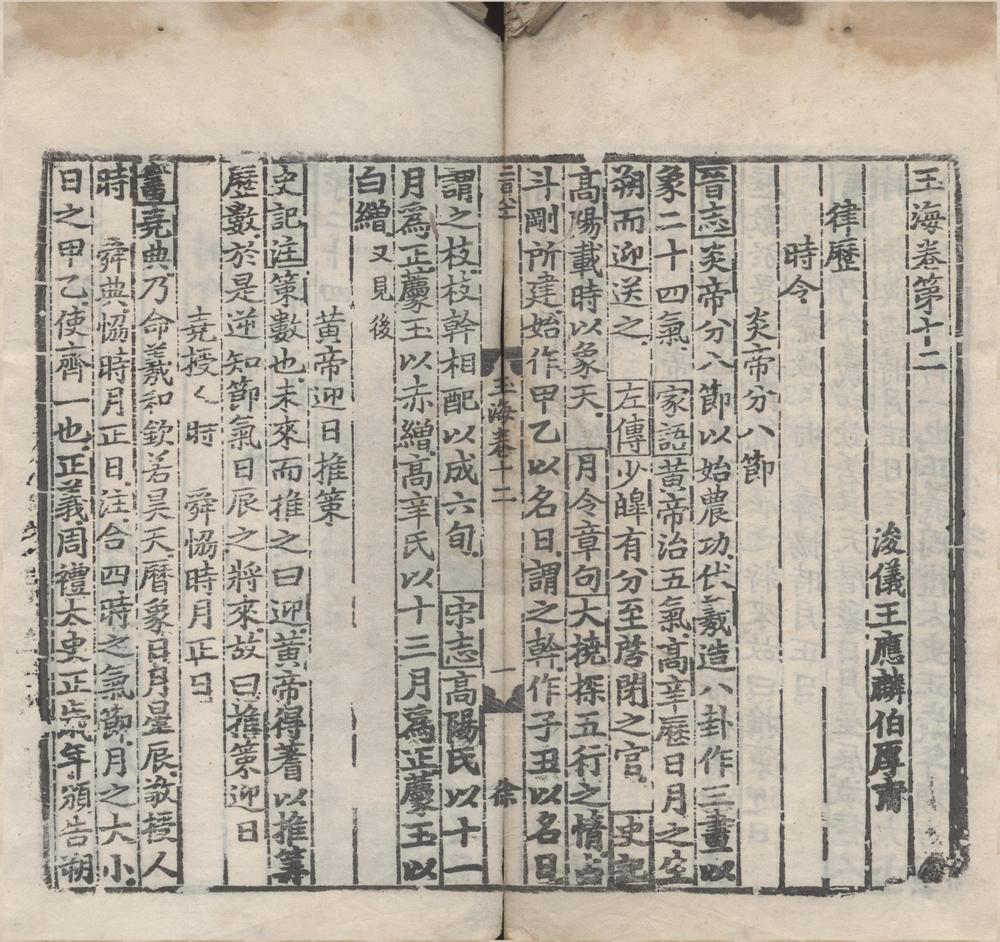 玉海卷第十二
浚儀王應麟伯厚甫
律歷
時令
炎帝分八節
晉志炎帝分八節以始農功伏羲造八卦作三畫以
象二十四氣家語黃帝治五氣高辛歷日月之生
朔而迎送之左傳少皥有分至啓閉之官史記
高陽載時以象天月令章句大撓探五行之情占
斗剛所建始作甲乙以名日謂之幹作子丑以名日
玉海卷十二
一
徐
謂之枝枝幹相配以成六旬宋志高陽氏以十一
月為正薦玉以赤繒高辛氏以十三月為正薦玉以
白繒又見後
黃帝迎日推策
史記注策數也未來而推之曰迎黃帝得蓍以推筭
歷數於是逆知節氣日辰之將來故曰推策迎日
堯授人時 舜協時月正日
書堯典乃命羲和欽若昊天曆象日月星辰敬授人
時 舜典協時月正日注合四時之氣節月之大小
日之甲乙使齊一也正義周禮太史正歲年頒告朔